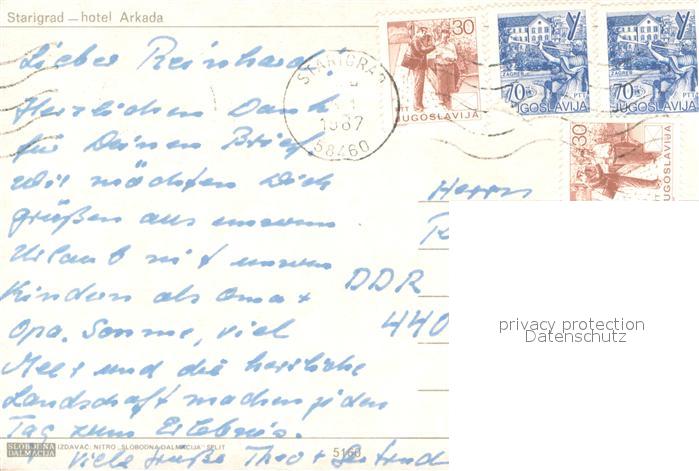 Starigrad — hotel Arkada
Lieber Reinhard!
Herzlichen Dank
für Deinen Brief.
Wir möchten Dich
grüßen aus unserem
Urlaub mit unseren
Kindern als Oma +
Opa. Sonne, viel
Meer und die herrliche
Landschaft machen jeden
Tag zum Erlebnis.
Viele Grüße Theo + Gertrud
STARIGRAD
1987
58460
30
JUGOSLAVIJA
ZAGREB
PTT
70
JUGOSLAVIJA
ZAGREB
PTT
70
JUGOSLAVIJA
30
JUGOSLAVIJA
Herrn
R
DDR
440
privacy protection
Datenschutz
SLOBODNA
DALMACIJA
IZDAVAČ: NITRO „SLOBODNA DALMACIJA" SPLIT
5160